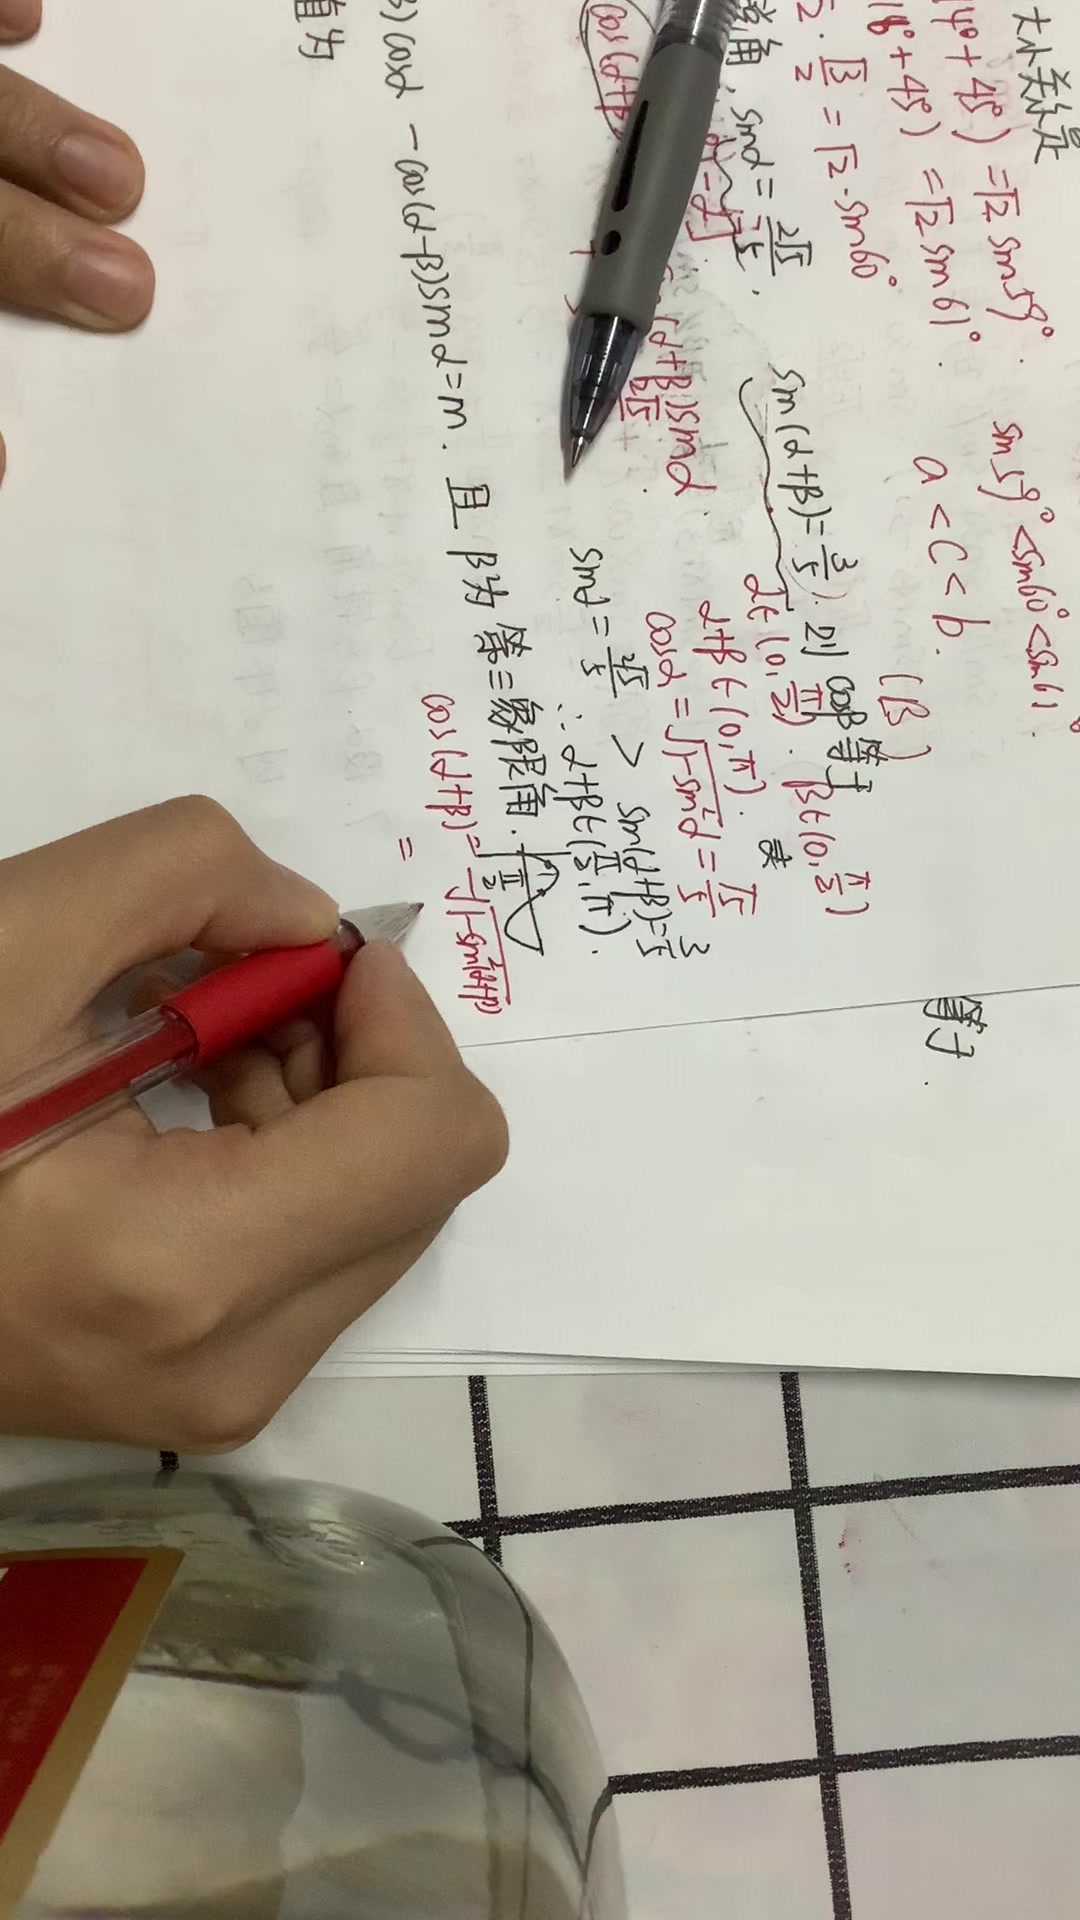 大小关系是
14°+45°) =√2 sin59°.
sin59°<sin60°<sin61°
18°+45°) =√2 sin61°.
a<c<b.
2·√3/2 = √2·sin60°
(B)
角, sinα = 2√5/5, sin(α+β)=3/5). 则 cosβ 等于
等于.
α∈(0,π/2). β∈(0,π/2)
α+β∈(0,π).
(α+β)sinα.
cosα=√1-sin²α=√5/5
cos(α+β
sinα=2√5/5 > sin(α+β)=3/5
∴α+β∈(π/2,π).
)cosα -cos(α-β)sinα=m. 且β为第三象限角.
cos(α+β)=-√1-sin²(α+β)
=
值为